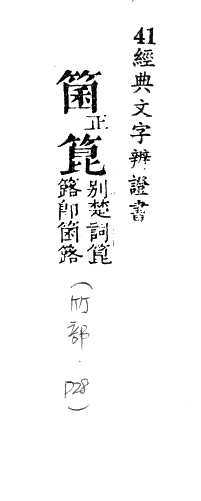 41經典文字辨證書
箘正
箟別楚詞箟
簬即箘簬
(竹部．P28)